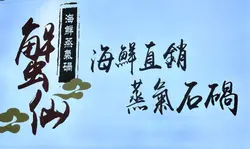 海鮮蒸氣碢
蟹仙
海鮮直銷
蒸氣石碢